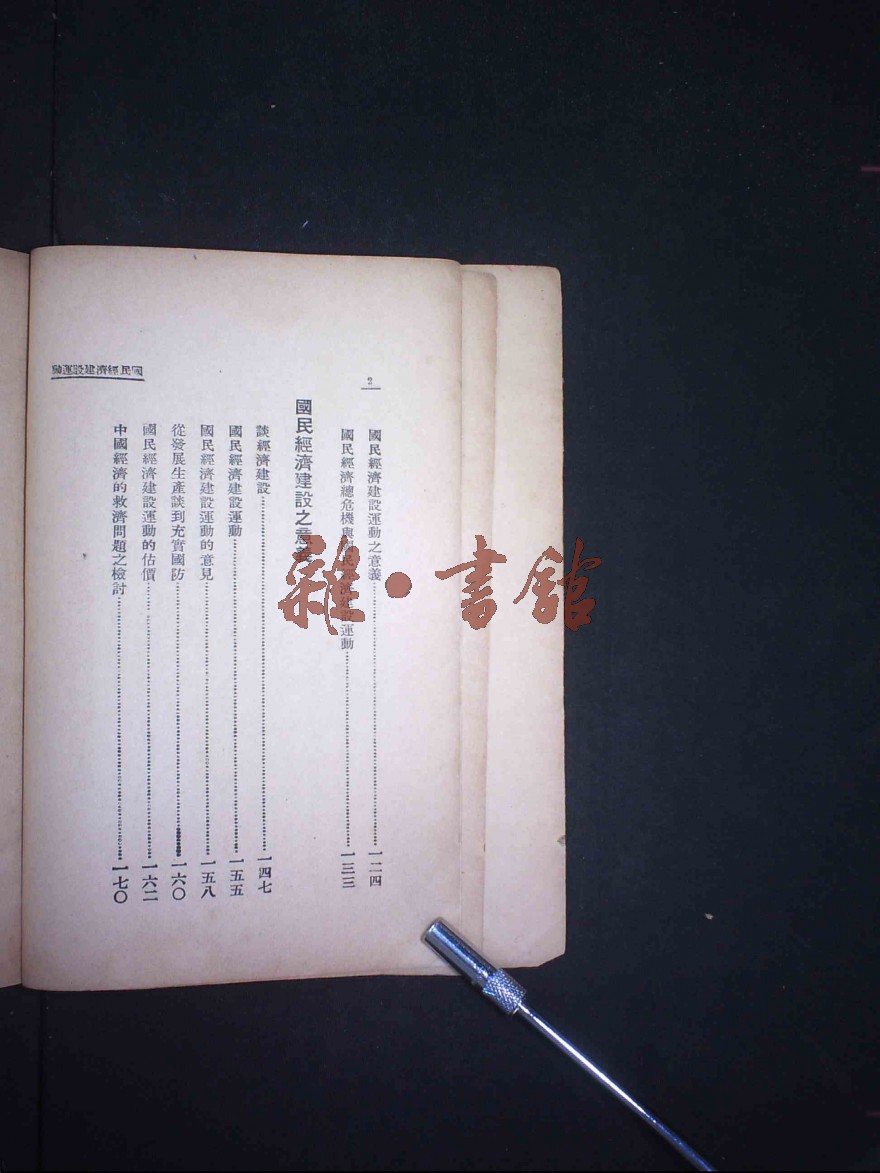 國民經濟建設運動
2
國民經濟建設運動之意義……一二四
國民經濟總危機與國民經濟建設運動……一三三
國民經濟建設之意義
談經濟建設……一四七
國民經濟建設運動……一五五
國民經濟建設運動的意見……一五八
從發展生產談到充實國防……一六〇
國民經濟建設運動的估價……一六二
中國經濟的救濟問題之檢討……一七〇
雜·書館